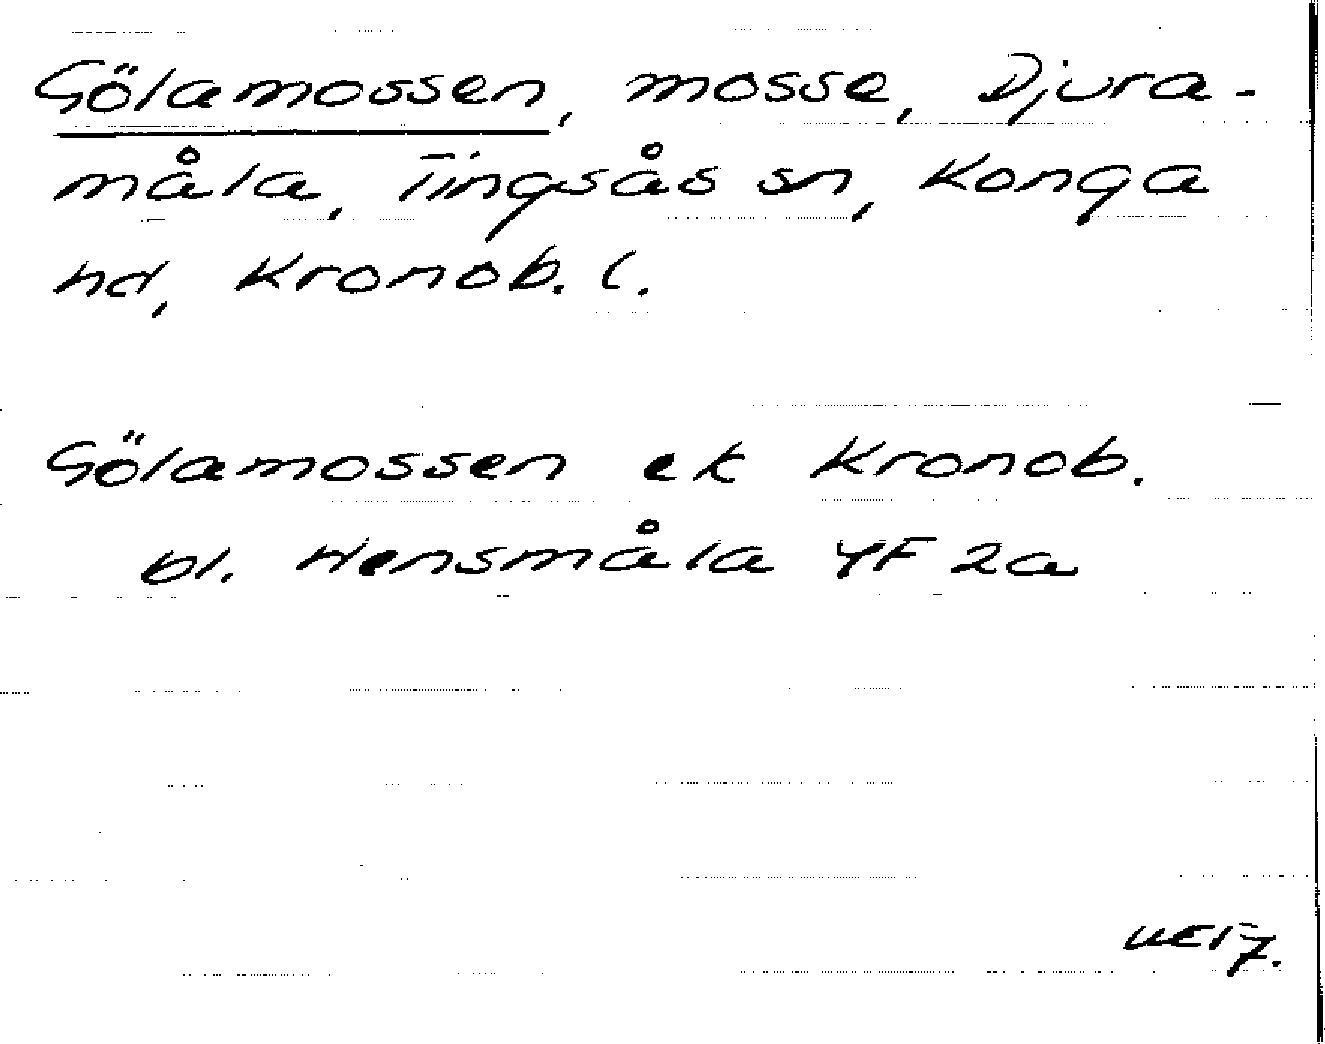 Sölamossen, mosse, Djura-
måla, Tingsås sn, Konga
hd, Kronob. l.
Sölamossen ek Kronob.
bl. Hensmåla 4F 2a